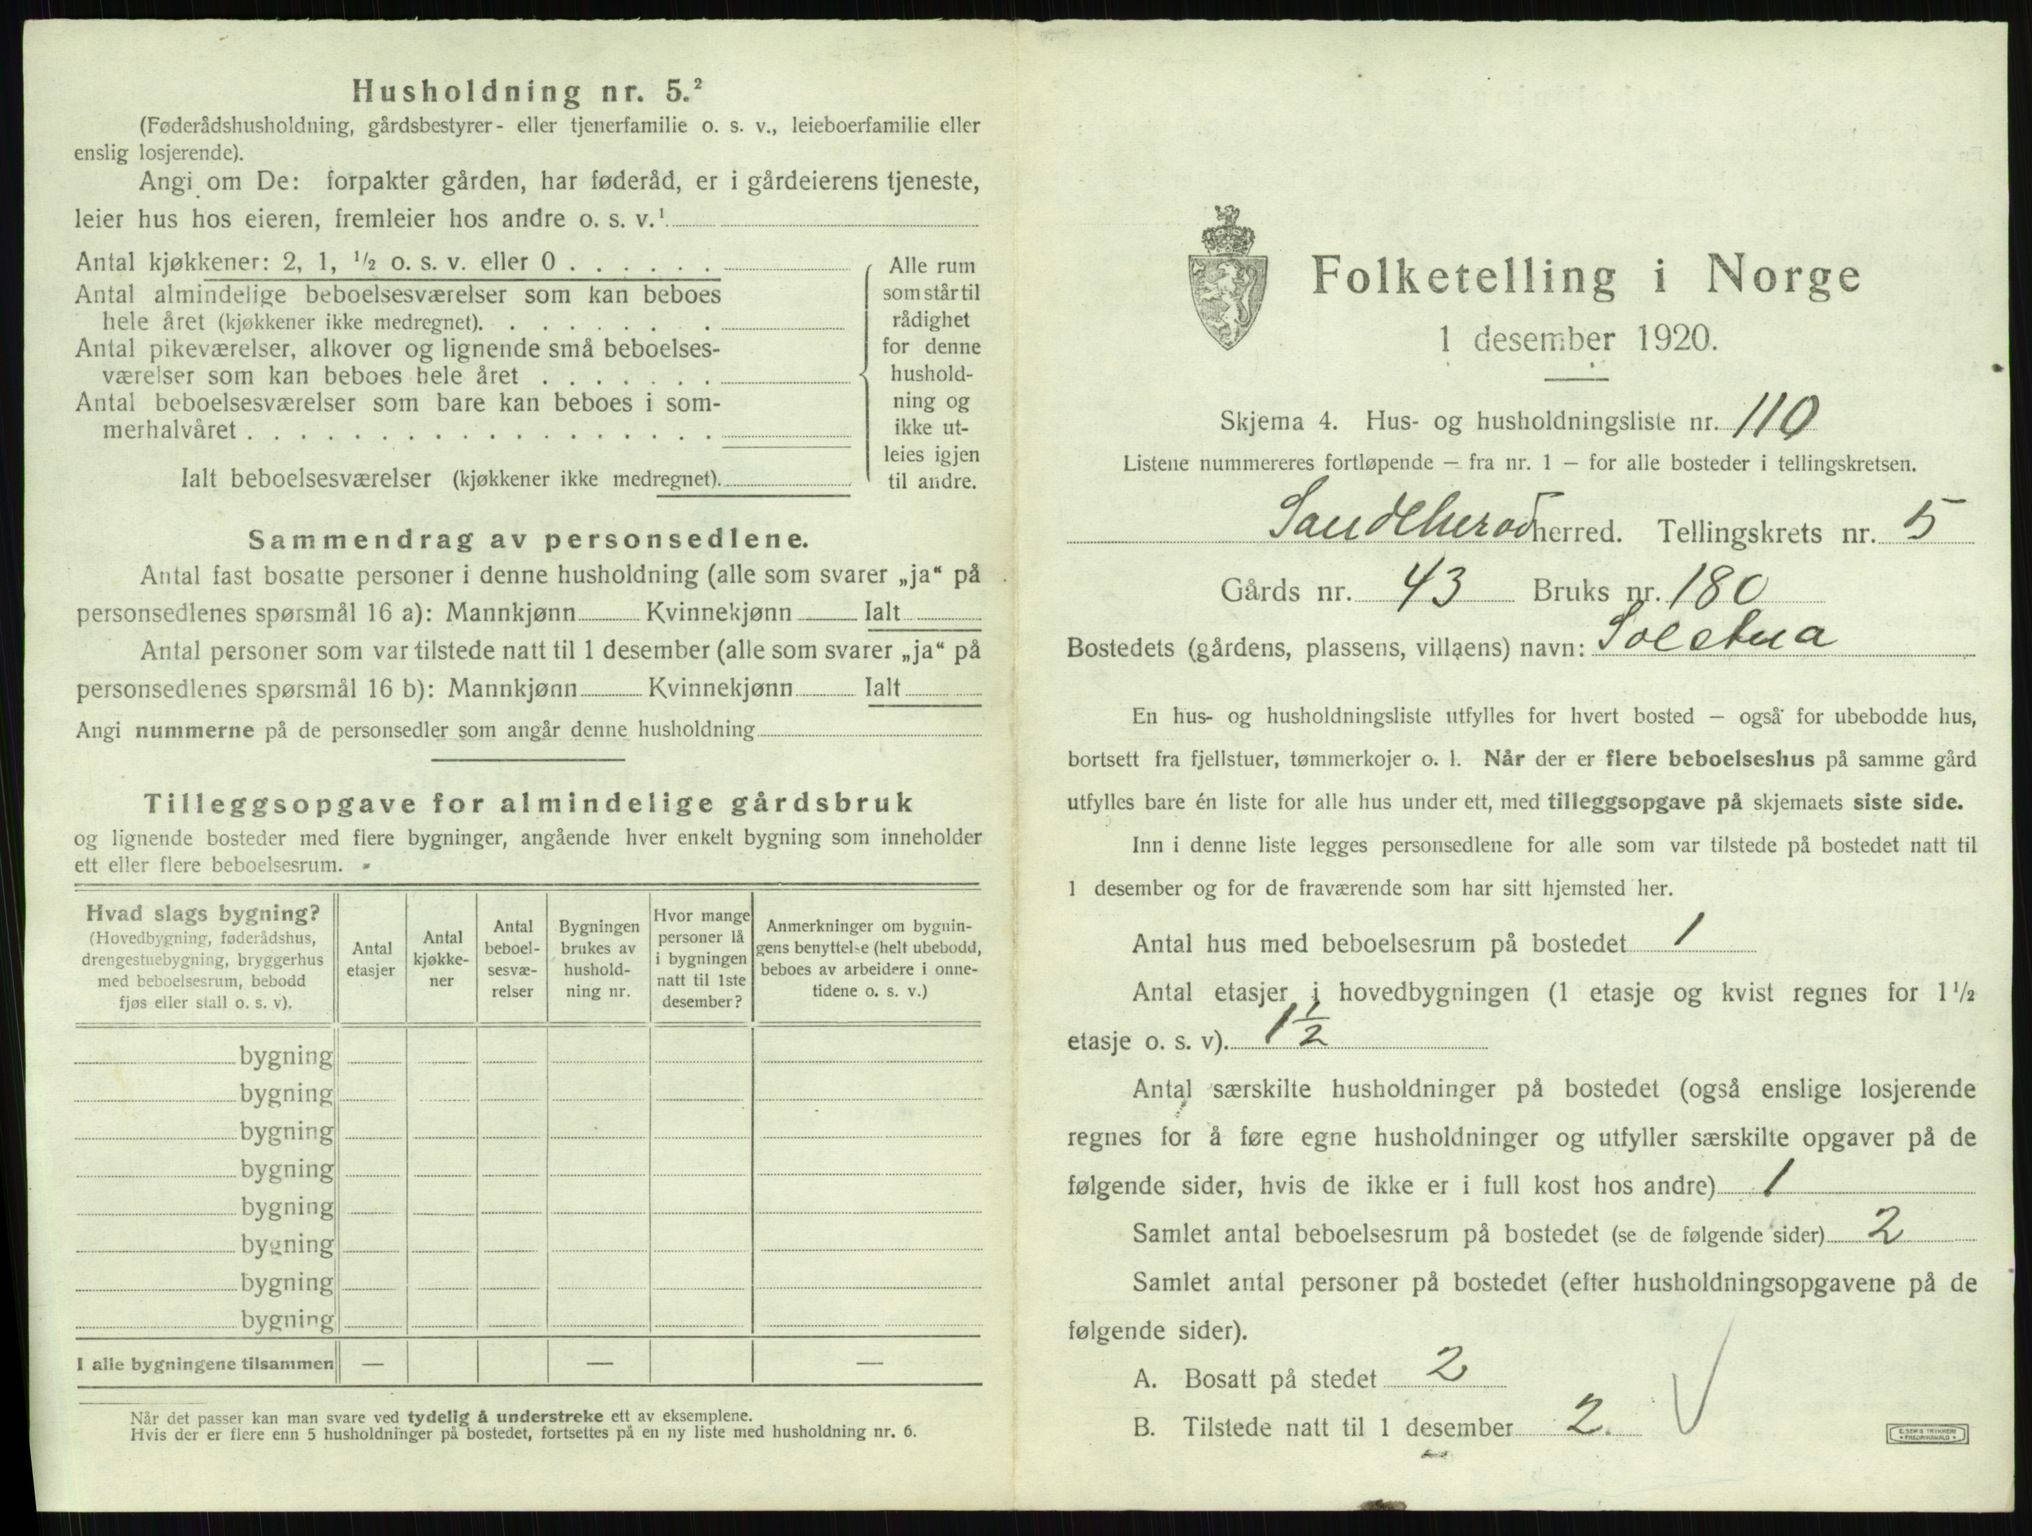 Husholdning nr. 5.²
(Føderådshusholdning, gårdsbestyrer- eller tjenerfamilie o. s. v., leieboerfamilie eller
enslig losjerende).
Angi om De: forpakter gården, har føderåd, er i gårdeierens tjeneste,
leier hus hos eieren, fremleier hos andre o. s. v.¹
Antal kjøkkener: 2, 1, ½ o. s. v. eller 0 . . . . . .
Antal almindelige beboelsesværelser som kan beboes
hele året (kjøkkener ikke medregnet). . . . . . . . .
Antal pikeværelser, alkover og lignende små beboelses-
værelser som kan beboes hele året . . . . . . .
Antal beboelsesværelser som bare kan beboes i som-
merhalvåret . . . . . . . . . . . . . . . . . .
Ialt beboelsesværelser (kjøkkener ikke medregnet).
Alle rum
som står til
rådighet
for denne
hushold-
ning og
ikke ut-
leies igjen
til andre.
Sammendrag av personsedlene.
Antal fast bosatte personer i denne husholdning (alle som svarer „ja“ på
personsedlenes spørsmål 16 a): Mannkjønn Kvinnekjønn Ialt
Antal personer som var tilstede natt til 1 desember (alle som svarer „ja“ på
personsedlenes spørsmål 16 b): Mannkjønn Kvinnekjønn Ialt
Angi nummerne på de personsedler som angår denne husholdning
Tilleggsopgave for almindelige gårdsbruk
og lignende bosteder med flere bygninger, angående hver enkelt bygning som inneholder
ett eller flere beboelsesrum.
Hvad slags bygning?
(Hovedbygning, føderådshus,
drengestuebygning, bryggerhus
med beboelsesrum, bebodd
fjøs eller stall o. s. v).
Antal
etasjer
Antal
kjøkke-
ner
Antal
beboel-
sesvæ-
relser
Bygningen
brukes av
hushold-
ning nr.
Hvor mange
personer lå
i bygningen
natt til 1ste
desember?
Anmerkninger om bygnin-
gens benyttelse (helt ubebodd,
beboes av arbeidere i onne-
tidene o. s. v.)
bygning
bygning
bygning
bygning
bygning
bygning
bygning
bygning
I alle bygningene tilsammen — — —
Når det passer kan man svare ved tydelig å understreke ett av eksemplene.
Hvis der er flere enn 5 husholdninger på bostedet, fortsettes på en ny liste med husholdning nr. 6.
Folketelling i Norge
1 desember 1920.
Skjema 4. Hus- og husholdningsliste nr. 110
Listene nummereres fortløpende – fra nr. 1 – for alle bosteder i tellingskretsen.
Sandeherod herred. Tellingskrets nr. 5
Gårds nr. 43 Bruks nr. 180
Bostedets (gårdens, plassens, villaens) navn: Solstua
En hus- og husholdningsliste utfylles for hvert bosted – også for ubebodde hus,
bortsett fra fjellstuer, tømmerkojer o. l. Når der er flere beboelseshus på samme gård
utfylles bare én liste for alle hus under ett, med tilleggsopgave på skjemaets siste side.
Inn i denne liste legges personsedlene for alle som var tilstede på bostedet natt til
1 desember og for de fraværende som har sitt hjemsted her.
Antal hus med beboelsesrum på bostedet 1
Antal etasjer i hovedbygningen (1 etasje og kvist regnes for 1½
etasje o. s. v). 1½
Antal særskilte husholdninger på bostedet (også enslige losjerende
regnes for å føre egne husholdninger og utfyller særskilte opgaver på de
følgende sider, hvis de ikke er i full kost hos andre) 1
Samlet antal beboelsesrum på bostedet (se de følgende sider) 2
Samlet antal personer på bostedet (efter husholdningsopgavene på de
følgende sider).
A. Bosatt på stedet 2
B. Tilstede natt til 1 desember 2.